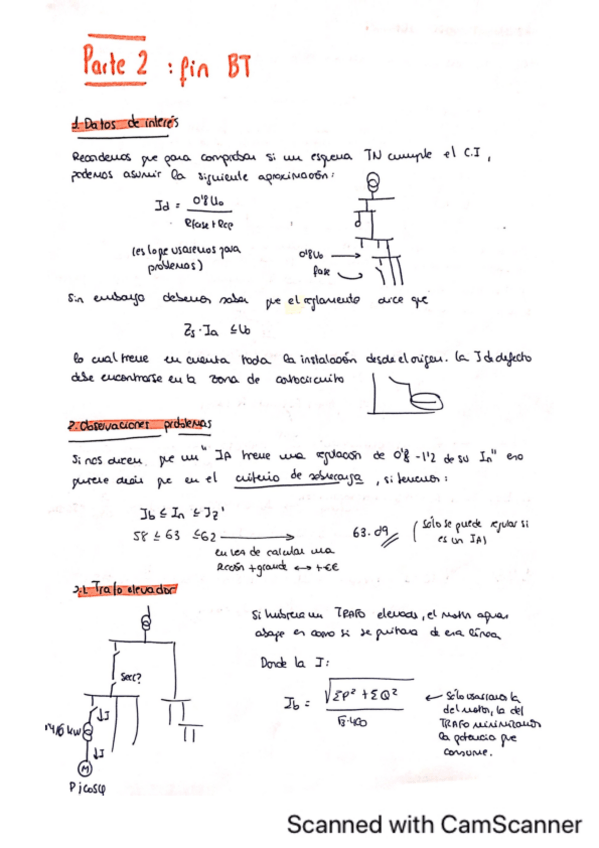 Parte 2 : fin BT
1. Datos de interés
Recordemos que para comprobar si un esquema TN cumple el C.I,
podemos asumir la siguiente aproximación:
Id = 0'8 U₀ / Rfase + Rcp
(es lo que usaremos para
problemas)
0'8U₀
fase
Sin embargo debemos saber que el reglamento dice que
Zs · Ia ≤ U₀
lo cual tiene en cuenta toda la instalación desde el origen. La I de defecto
debe encontrarse en la zona de cortocircuito
2. Observaciones problemas
Si nos dicen que un " IA tiene una regulación de 0'8 - 1'2 de su In" eso
quiere decir que en el criterio de sobrecarga, si tenemos:
Ib ≤ In ≤ Iz'
58 ≤ 63 ≤62
63 · 0'9
(sólo se puede regular si
es un IA)
en vez de calcular una
sección + grande ↔ +€€
2.1. Trafo elevador
Si hubiera un TRAFO elevador, el motor aguas
abajo es como si se quitara de esa línea
Donde la I:
Ib = √ΣP² + ΣQ² / √3·400
← Sólo usaríamos la
del motor, la del
TRAFO
la potencia que
consume.
Secc?
↓I
kW
↓I
M
P i cosφ
Scanned with CamScanner